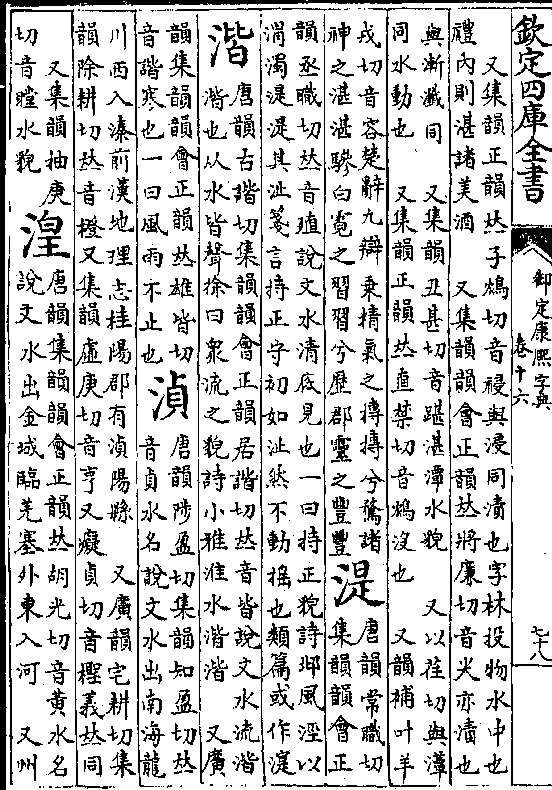 欽定四庫全書
御定康熙字典
卷十六
七十八
又集韻正韻𠀤子鴆切音祲與浸同漬也字林投物水中也
禮內則湛諸美酒 又集韻韻會正韻𠀤將廉切音尖亦漬也
與漸瀸同 又集韻丑甚切音踸湛潭水貌 又以荏切與潭
同水動也 又集韻正韻𠀤直禁切音鴆沒也 又韻補叶羊
戎切音容楚辭九辯乗精氣之摶摶兮騖諸
神之湛湛驂白霓之習習兮歴郡靈之豐豐
湜
唐韻常職切
集韻韻會正
韻丞職切𠀤音殖說文水清底見也一曰持正貌詩邶風涇以
渭濁湜湜其沚箋言持正守初如沚然不動揺也類篇或作㴛
湝
唐韻古諧切集韻韻會正韻居諧切𠀤音皆說文水流湝
湝也从水皆聲徐曰衆流之貌詩小雅淮水湝湝 又廣
韻集韻韻會正韻𠀤雄皆切
音諧寒也一曰風雨不止也
湞
唐韻陟盈切集韻知盈切𠀤
音貞水名說文水出南海龍
川西入溱前漢地理志桂陽郡有湞陽縣 又廣韻宅耕切集
韻除耕切𠀤音橙又集韻虛庚切音亨又癡貞切音檉義𠀤同
又集韻抽庚
切音瞠水貌
湟
唐韻集韻韻會正韻𠀤胡光切音黃水名
說文水出金城臨羌塞外東入河 又州